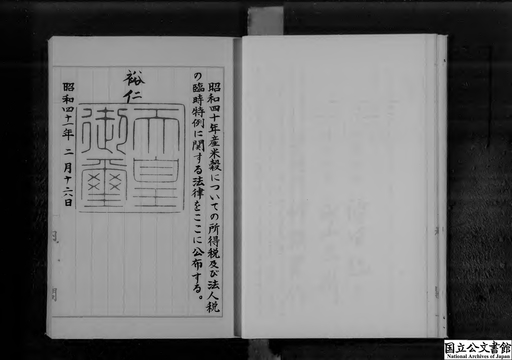 昭和四十年産米穀についての所得税及び法人税
の臨時特例に関する法律をここに公布する。
裕仁
天皇御璽
昭和四十一年二月十六日
国立公文書館
National Archives of Japan